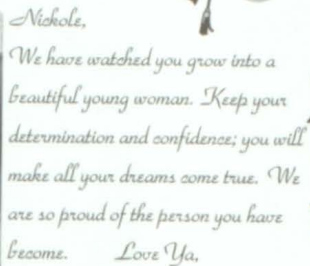 Nickole,
We have watched you grow into a
beautiful young woman. Keep your
determination and confidence; you will
make all your dreams come true. We
are so proud of the person you have
become. Love Ya,